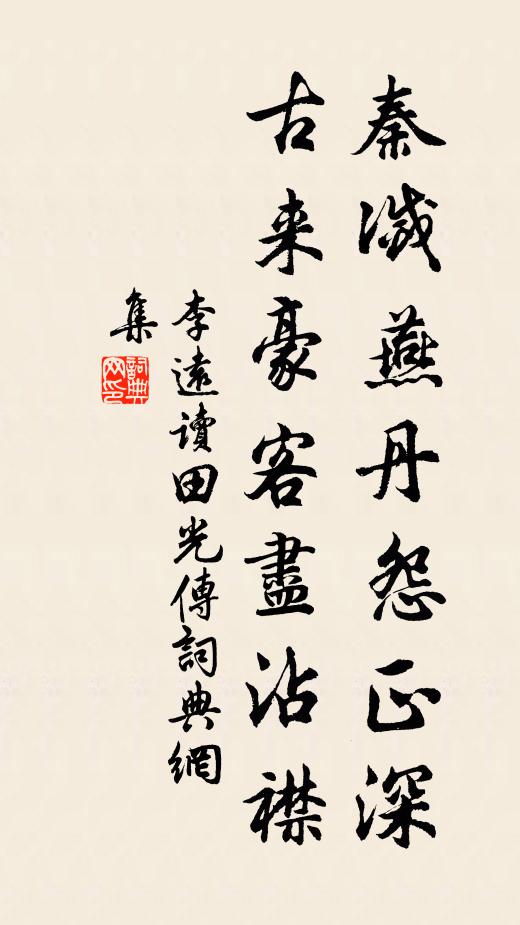 秦滅燕丹怨正深
古来豪客盡沾襟
李遠讀田光傳詞典網
集
詞典
网印